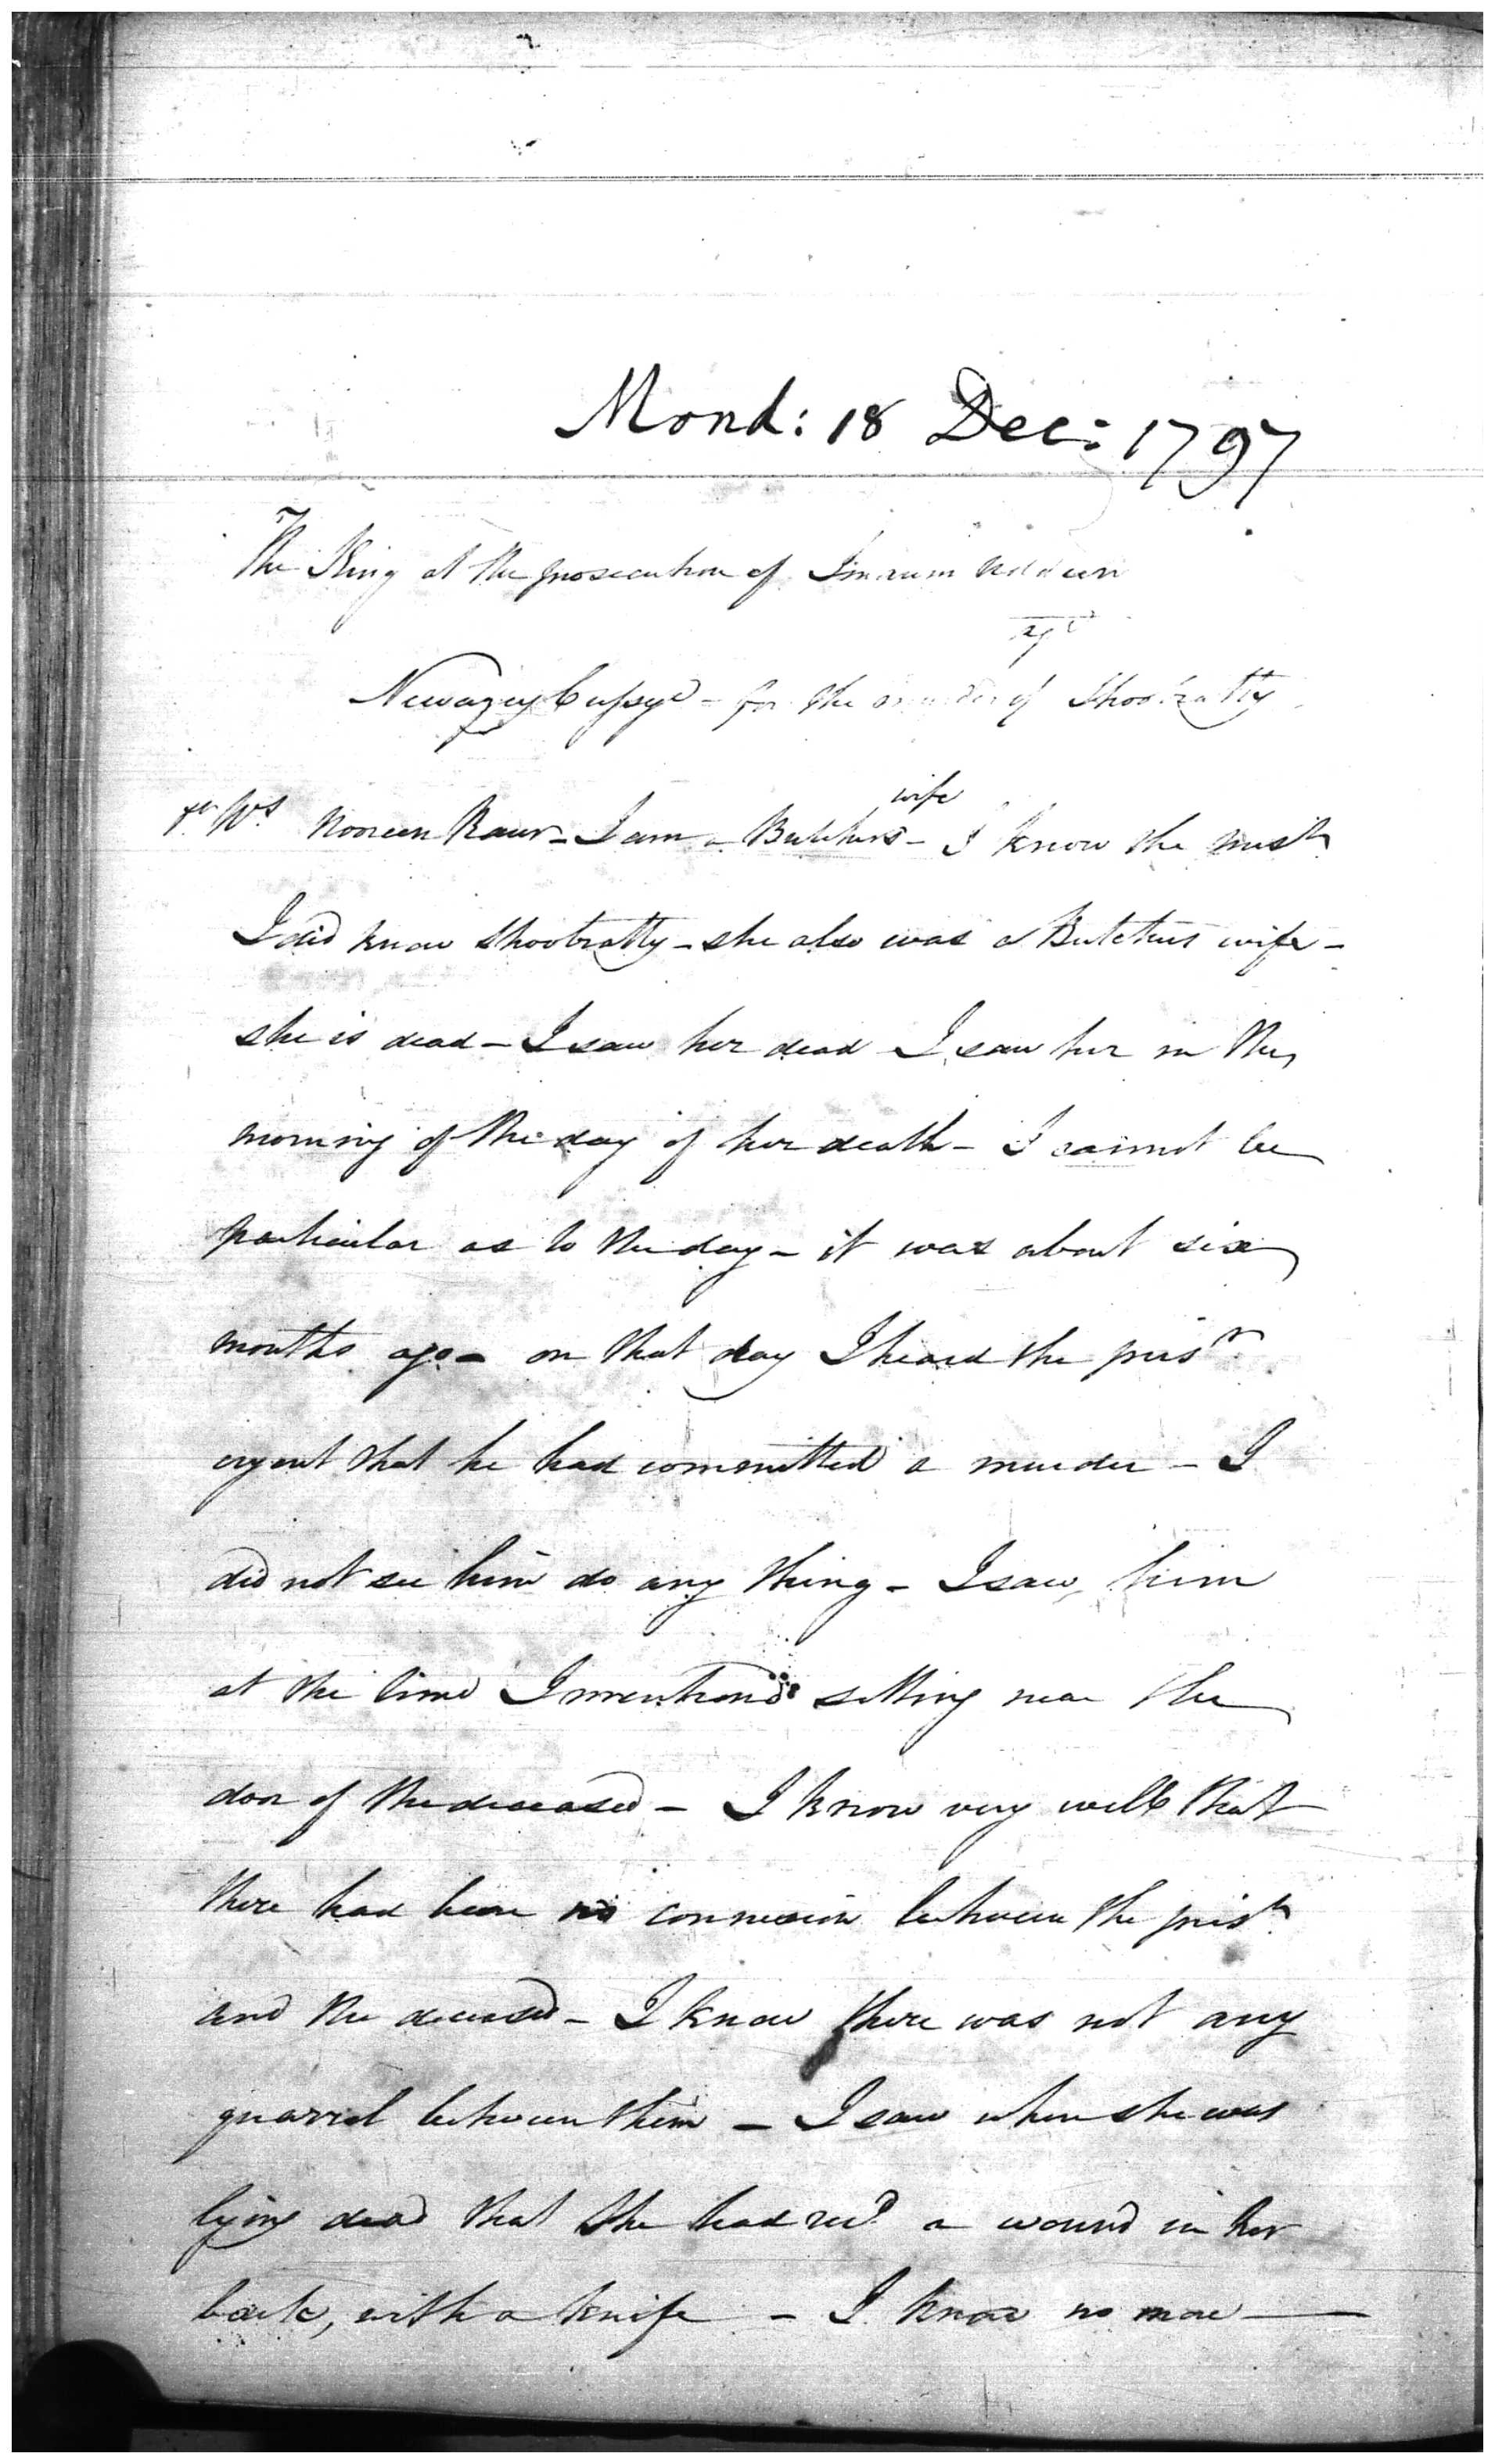 Mond: 18 Dec: 1797
The King at the prosecution of Imaum
agt
for the murder of Shoobratty
Wt. Nooreen I am a Butchers wife - I know the prisr
I did know Shoobratty - she also was a Butchers wife -
she is dead - I saw her dead I saw her in the
morning of the day of her death - I cannot be
particular as to the day - it was about six
months ago - on that day I heard the prisr
cry out that he had committed a murder - I
did not see him do any thing - I saw him
at the time I mentiond sitting near the
door of the deceased - I know very well that
there had been no connexion between the prisr
and the deceased - I know there was not any
quarrel between them - I saw when she was
lying dead that she had recd a wound in her
back, with a knife - I know no more -